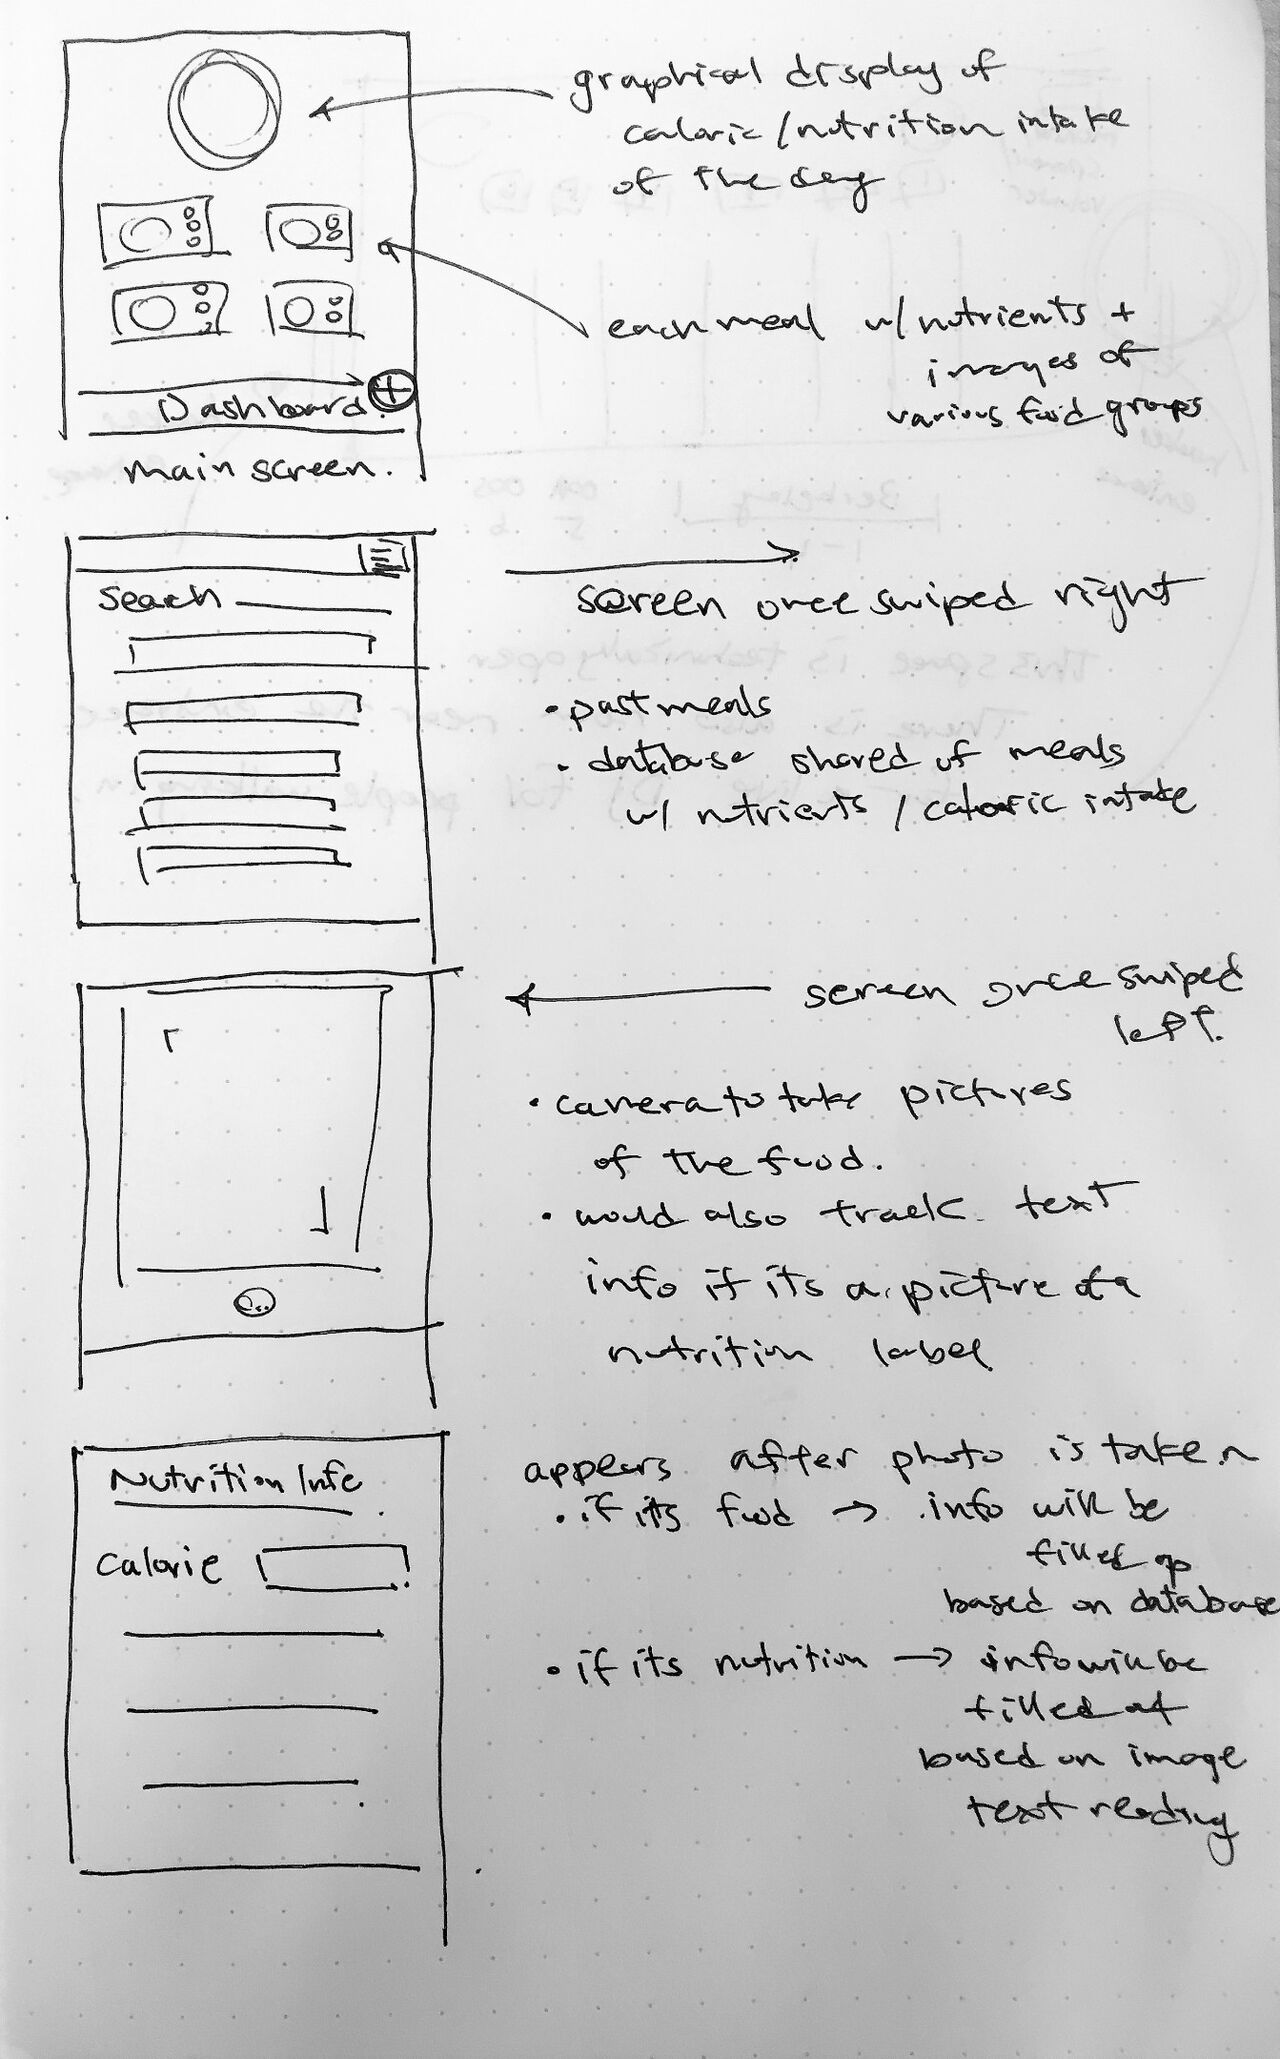 graphical display of
caloric/nutrition intake
of the day
each meal w/nutrients +
images of
various food groups
Dashboard
main screen.
Search
screen once swiped right
• past meals
• database shared of meals
w/ nutrients / caloric intake
screen once swiped
left.
• camera to take pictures
of the food.
• would also track text
info if its a picture of a
nutrition label
Nutrition Info
Calorie
appears after photo is taken
• if its food → info will be
filled up
based on database
• if its nutrition → info will be
filled
based on image
text reading